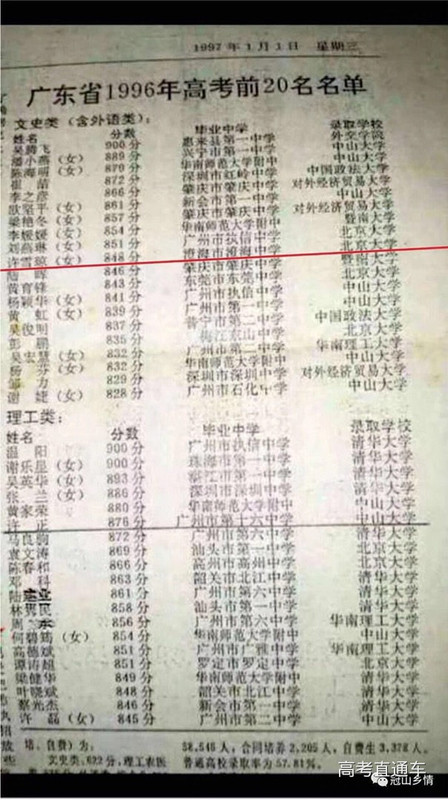 1997年1月1日 星期三
广东省1996年高考前20名名单
文史类(含外语类):
姓名 分数 毕业中学 录取学校
吴腾飞 900分 惠来县第一中学 外交学院
潘小燕(女) 889分 兴宁市第一中学 中山大学
陈海明(女) 879分 华南师范大学附中 中山大学
崔喆 872分 深圳市红岭中学 中国政法大学
李之彦 866分 肇庆市肇庆中学 对外经济贸易大学
欧至平(女) 861分 新会市第一中学 中山大学
梁艳冬(女) 857分 肇庆市肇庆中学 对外经济贸易大学
李媛媛(女) 854分 华南师范大学附中 暨南大学
刘燕琳(女) 851分 广州市执信中学 北京大学
许雪琼(女) 848分 澄海市澄海中学 北京大学
陆晖 846分 肇庆市肇庆中学 暨南大学
黄育锋 843分 东莞市东莞中学 北京大学
杨颖华(女) 841分 广州市执信中学 中山大学
黄虹(女) 839分 中山大学
吴俊明 837分 普宁市第二中学 中国政法大学
彭鹏 835分 北京大学
吴宏慧(女) 832分 华南理工大学
杨芬(女) 832分 华南师范大学附中 中山大学
邹力 829分 深圳市深圳中学 对外经济贸易大学
谢婕(女) 828分 广州市石化中学 中山大学
理工类:
姓名 分数 毕业中学 录取学校
温阳 900分 广州市执信中学 清华大学
谢乐星(女) 900分 珠海市第一中学 清华大学
吴英华(女) 893分 湛江市第一中学 清华大学
张兰(女) 886分 深圳市深圳中学 清华大学
黄家荣 880分 华南师范大学附中 清华大学
许正 876分 广州市第十六中学 清华大学
马良驹 872分 广州市第六中学 清华大学
袁文涛 869分 汕头市第一中学 北京大学
陈春和 866分 高州市高州中学 北京大学
邓科 863分 韶关市北江中学 清华大学
陆建业 861分 广州市第六中学 清华大学
858分 汕头市第一中学 清华大学
856分 广州市第六中学 华南理工大学
何碧筠(女) 854分 华南师范大学附中 中山大学
高德斌 851分 广州市广雅中学 华南理工大学
谭涛超 851分 罗定市罗定中学 北京大学
梁健华 849分 华南师范大学附中 清华大学
叶晓斌 848分 韶关市北江中学 清华大学
蔡光杰 846分 新会市第一中学 清华大学
许磊(女) 845分 广州市第二中学 中山大学
培、自费)为: 58,545人,合同培养2,205人,自费生3,378人。
文史类,622分,理工农医 普通高校录取率为57.81%。
高考直通车
冠山乡情